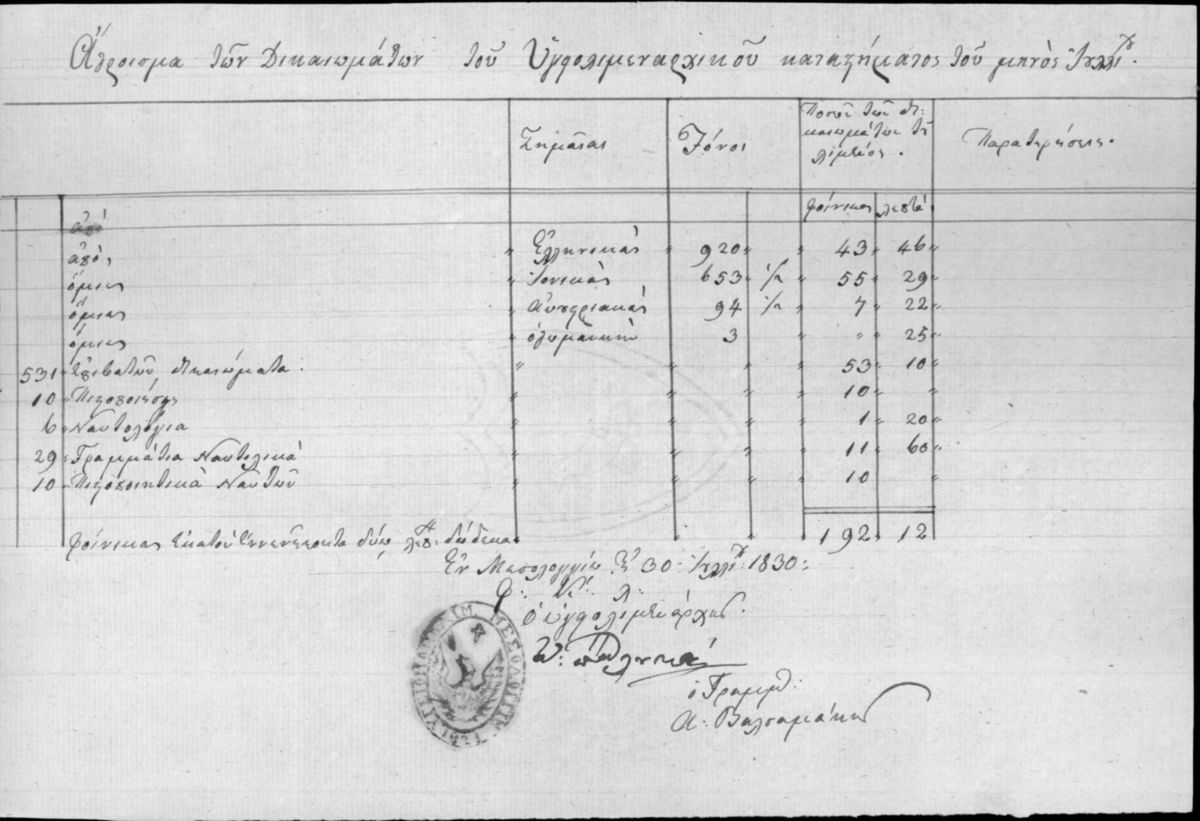 Ἄθροισμα τῶν Δικαιωμάτων τοῦ Ὑγειολιμεναρχικοῦ καταστήματος τοῦ μηνὸς Ἰουλί
Σημαίας Τόνοι Ποσὸν τῶν δι-
καιωμάτων τῦ
λιμένος. Παρατηρήσεις.
φοίνικας λεπτά.
ἀπό
ἀπό, " Ἑλληνικὰς " 920 " " 43 " 46 "
ὅμοιως " Ἰονικὰς " 653 " 1/2 " 55 " 29 "
ὅμοιως " Αὐστριακὰς " 94 " 1/2 " 7 " 22 "
ὅμοιως " ὀθωμανικὴν 3 " " " 25 "
531 " Ἐπιβατῶν δικαιώματα. " " " " 53 " 10 "
10 " Πιστοποιήσεις " " " " 10 " "
6 " Ναυτολόγια " " " " 1 " 20 "
29 " Γραμμάτια Ναυτιλικὰ " " " " 11 " 60 "
10 " Πιστοποιητικὰ Ναυτῶν " " " " 10 " "
192 12
φοίνικας ἑκατὸν ἐννενήκοντα δύω λεπ: δώδεκα
Ἐν Μεσολογγίῳ τῇ 30 Ἰουλί 1830:
ὁ ὑγειολιμενάρχης.
ὁ Γραμμ:
Α: Βαλσαμάκης